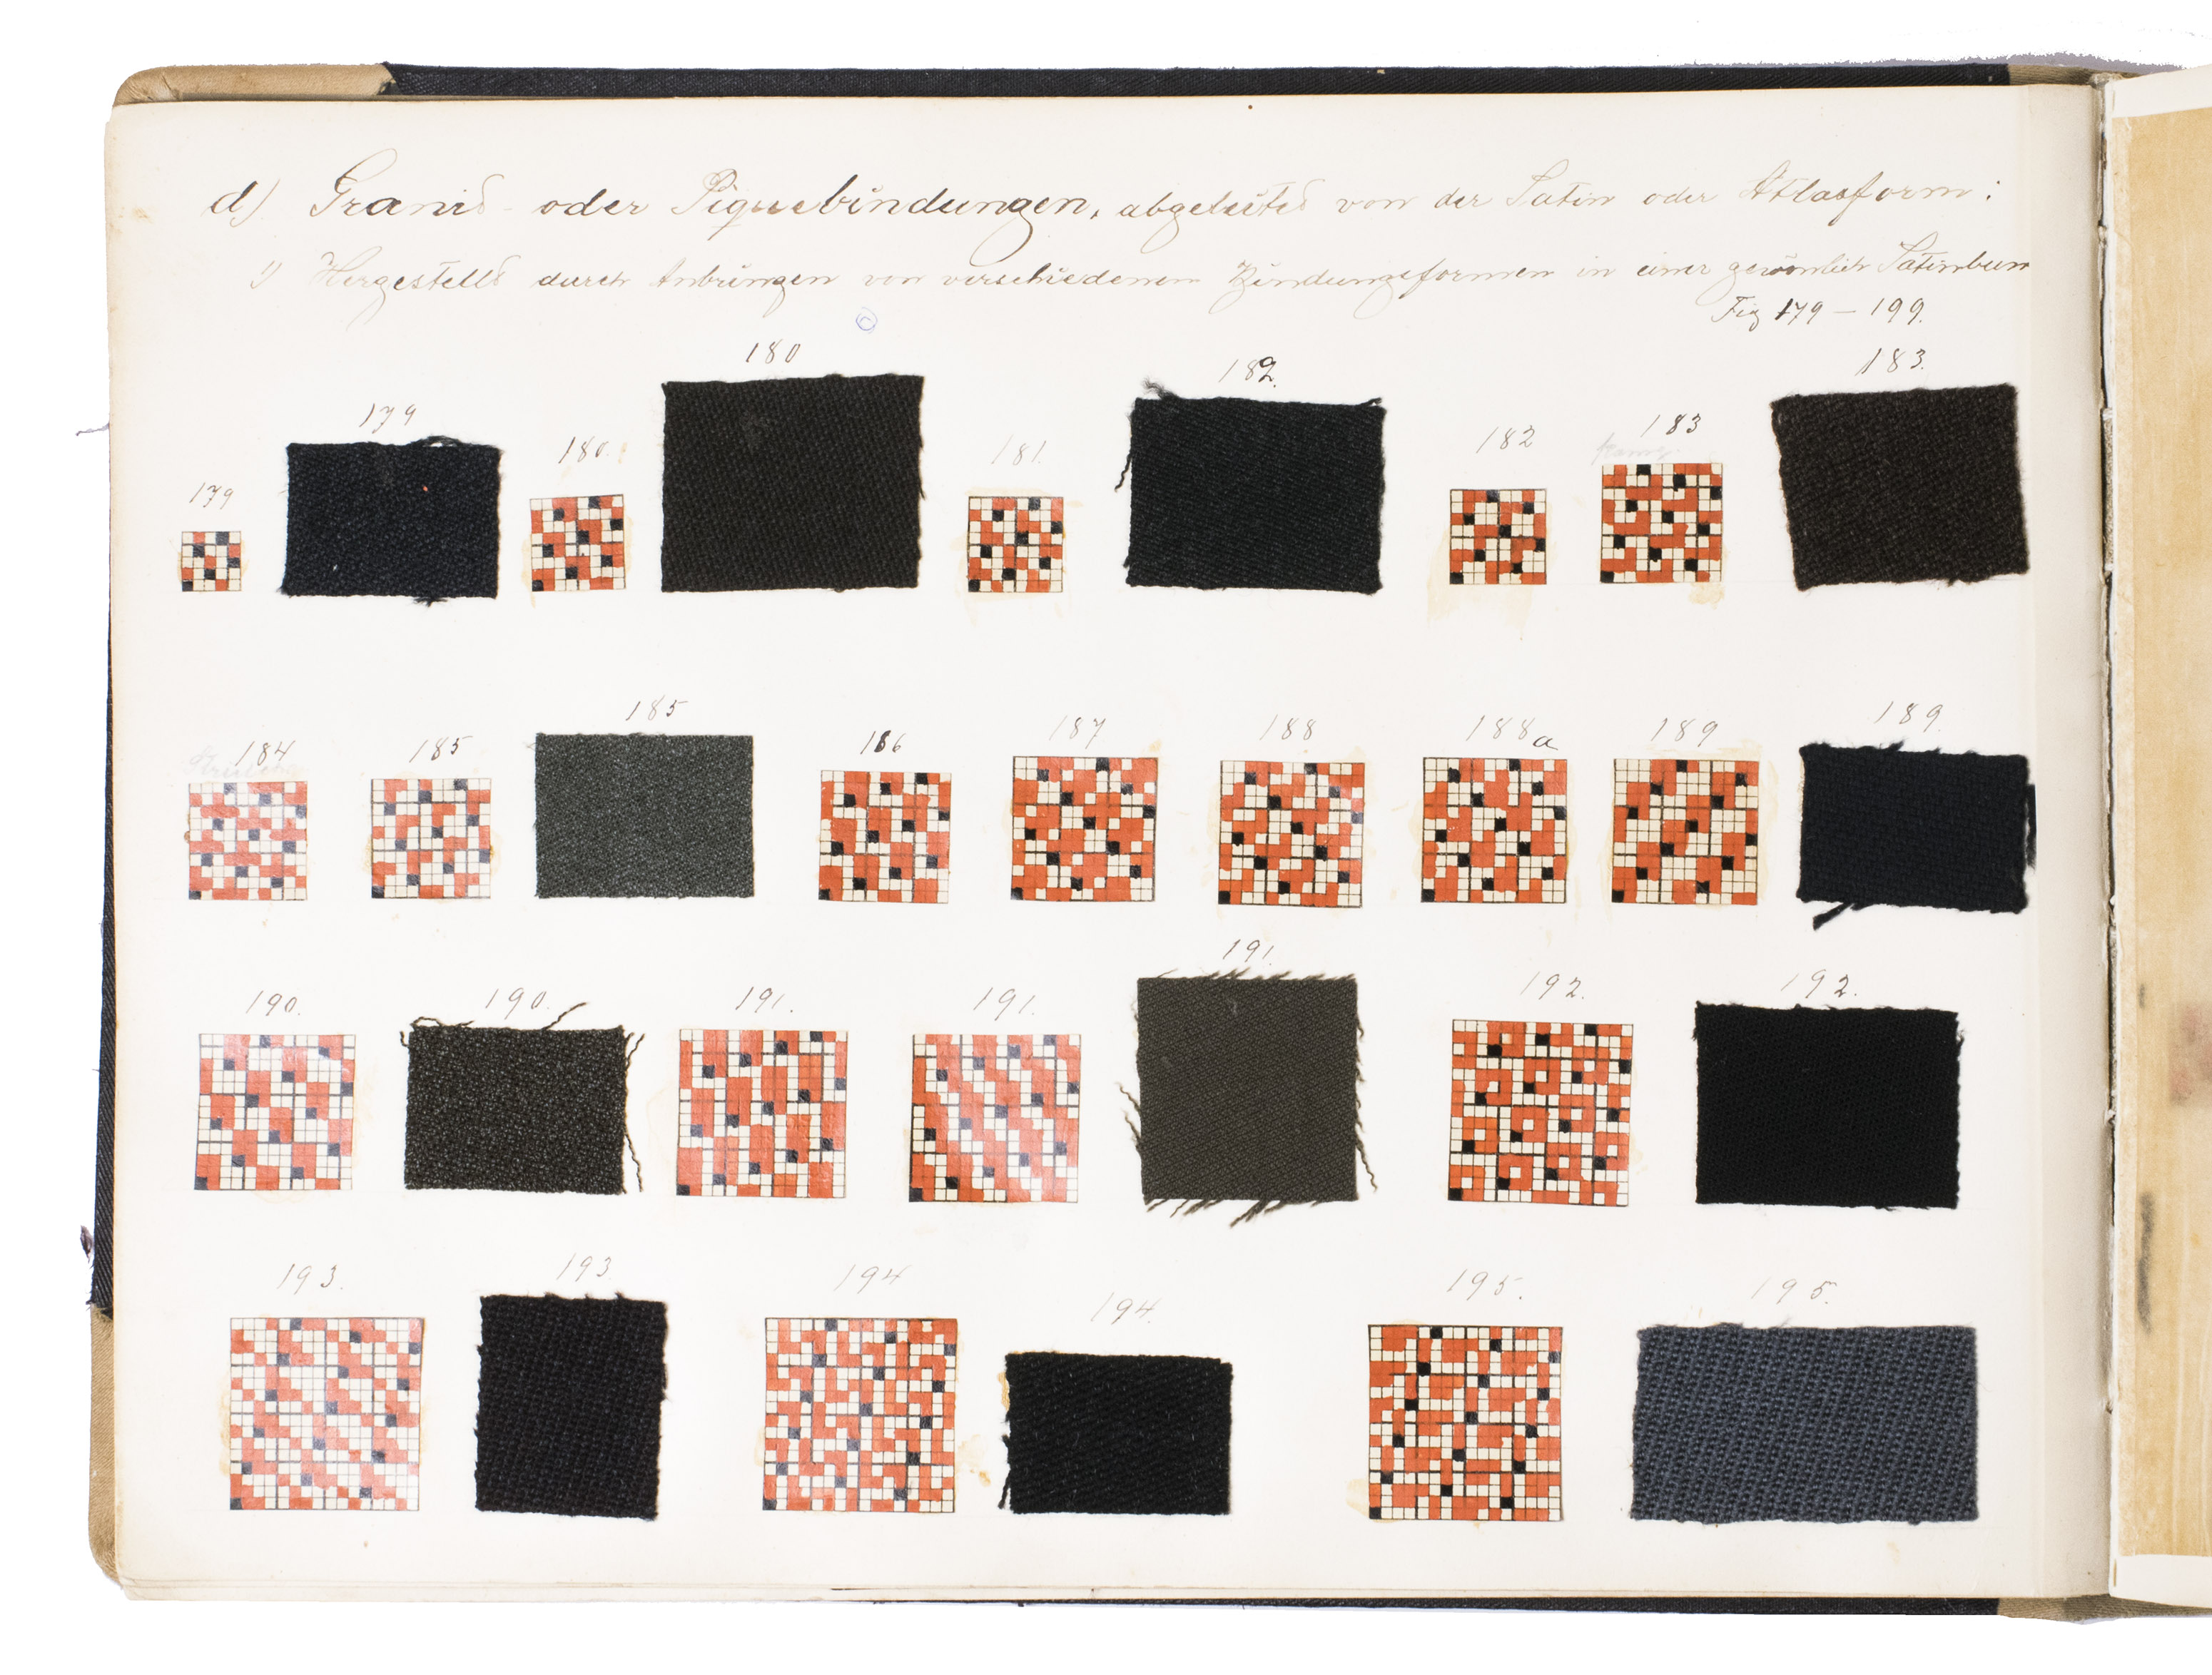 d) Granit- oder Piquebindungen, abgeleitet von der Satin oder Atlasform:
1) Hergestellt durch Anbringen von verschiedenen Bindungsformen in einer gewöönlich Satinbun
Fig 179 – 199.
179 179 180. 180 181. 182. 182 183 183.
184 185 185 186 187 188 188a 189 189.
190. 190. 191. 191. 191. 192. 192.
193. 193 194 194. 195. 195.